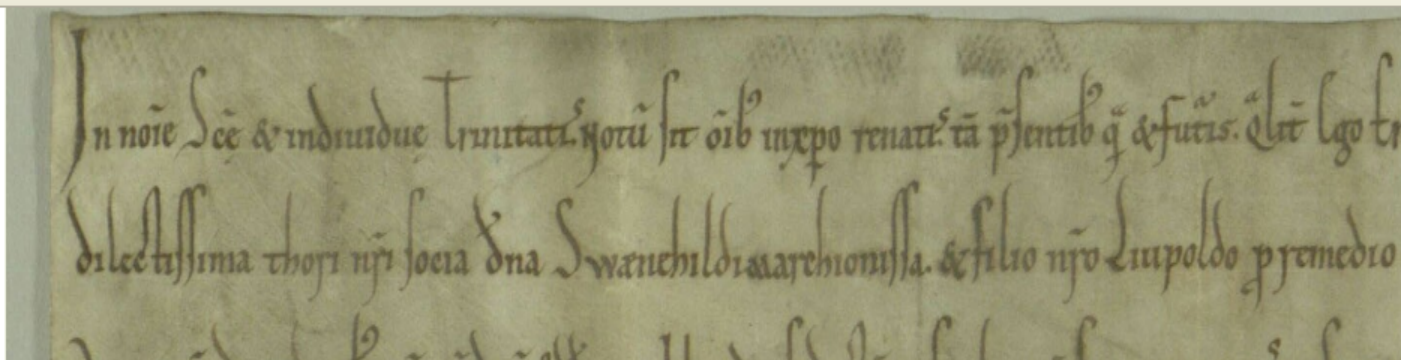 In noīe Scē & indiuiduę Trinitatis. Notū sit oīb' in xpo renatis. tā p̄sentib' q̄ & futuris. Qͣlit̄ Ego
dilectissima thori nr̄i socia dn̄a Swanehildi marchionissa. & filio nr̄o Liupoldo ꝓ remedio